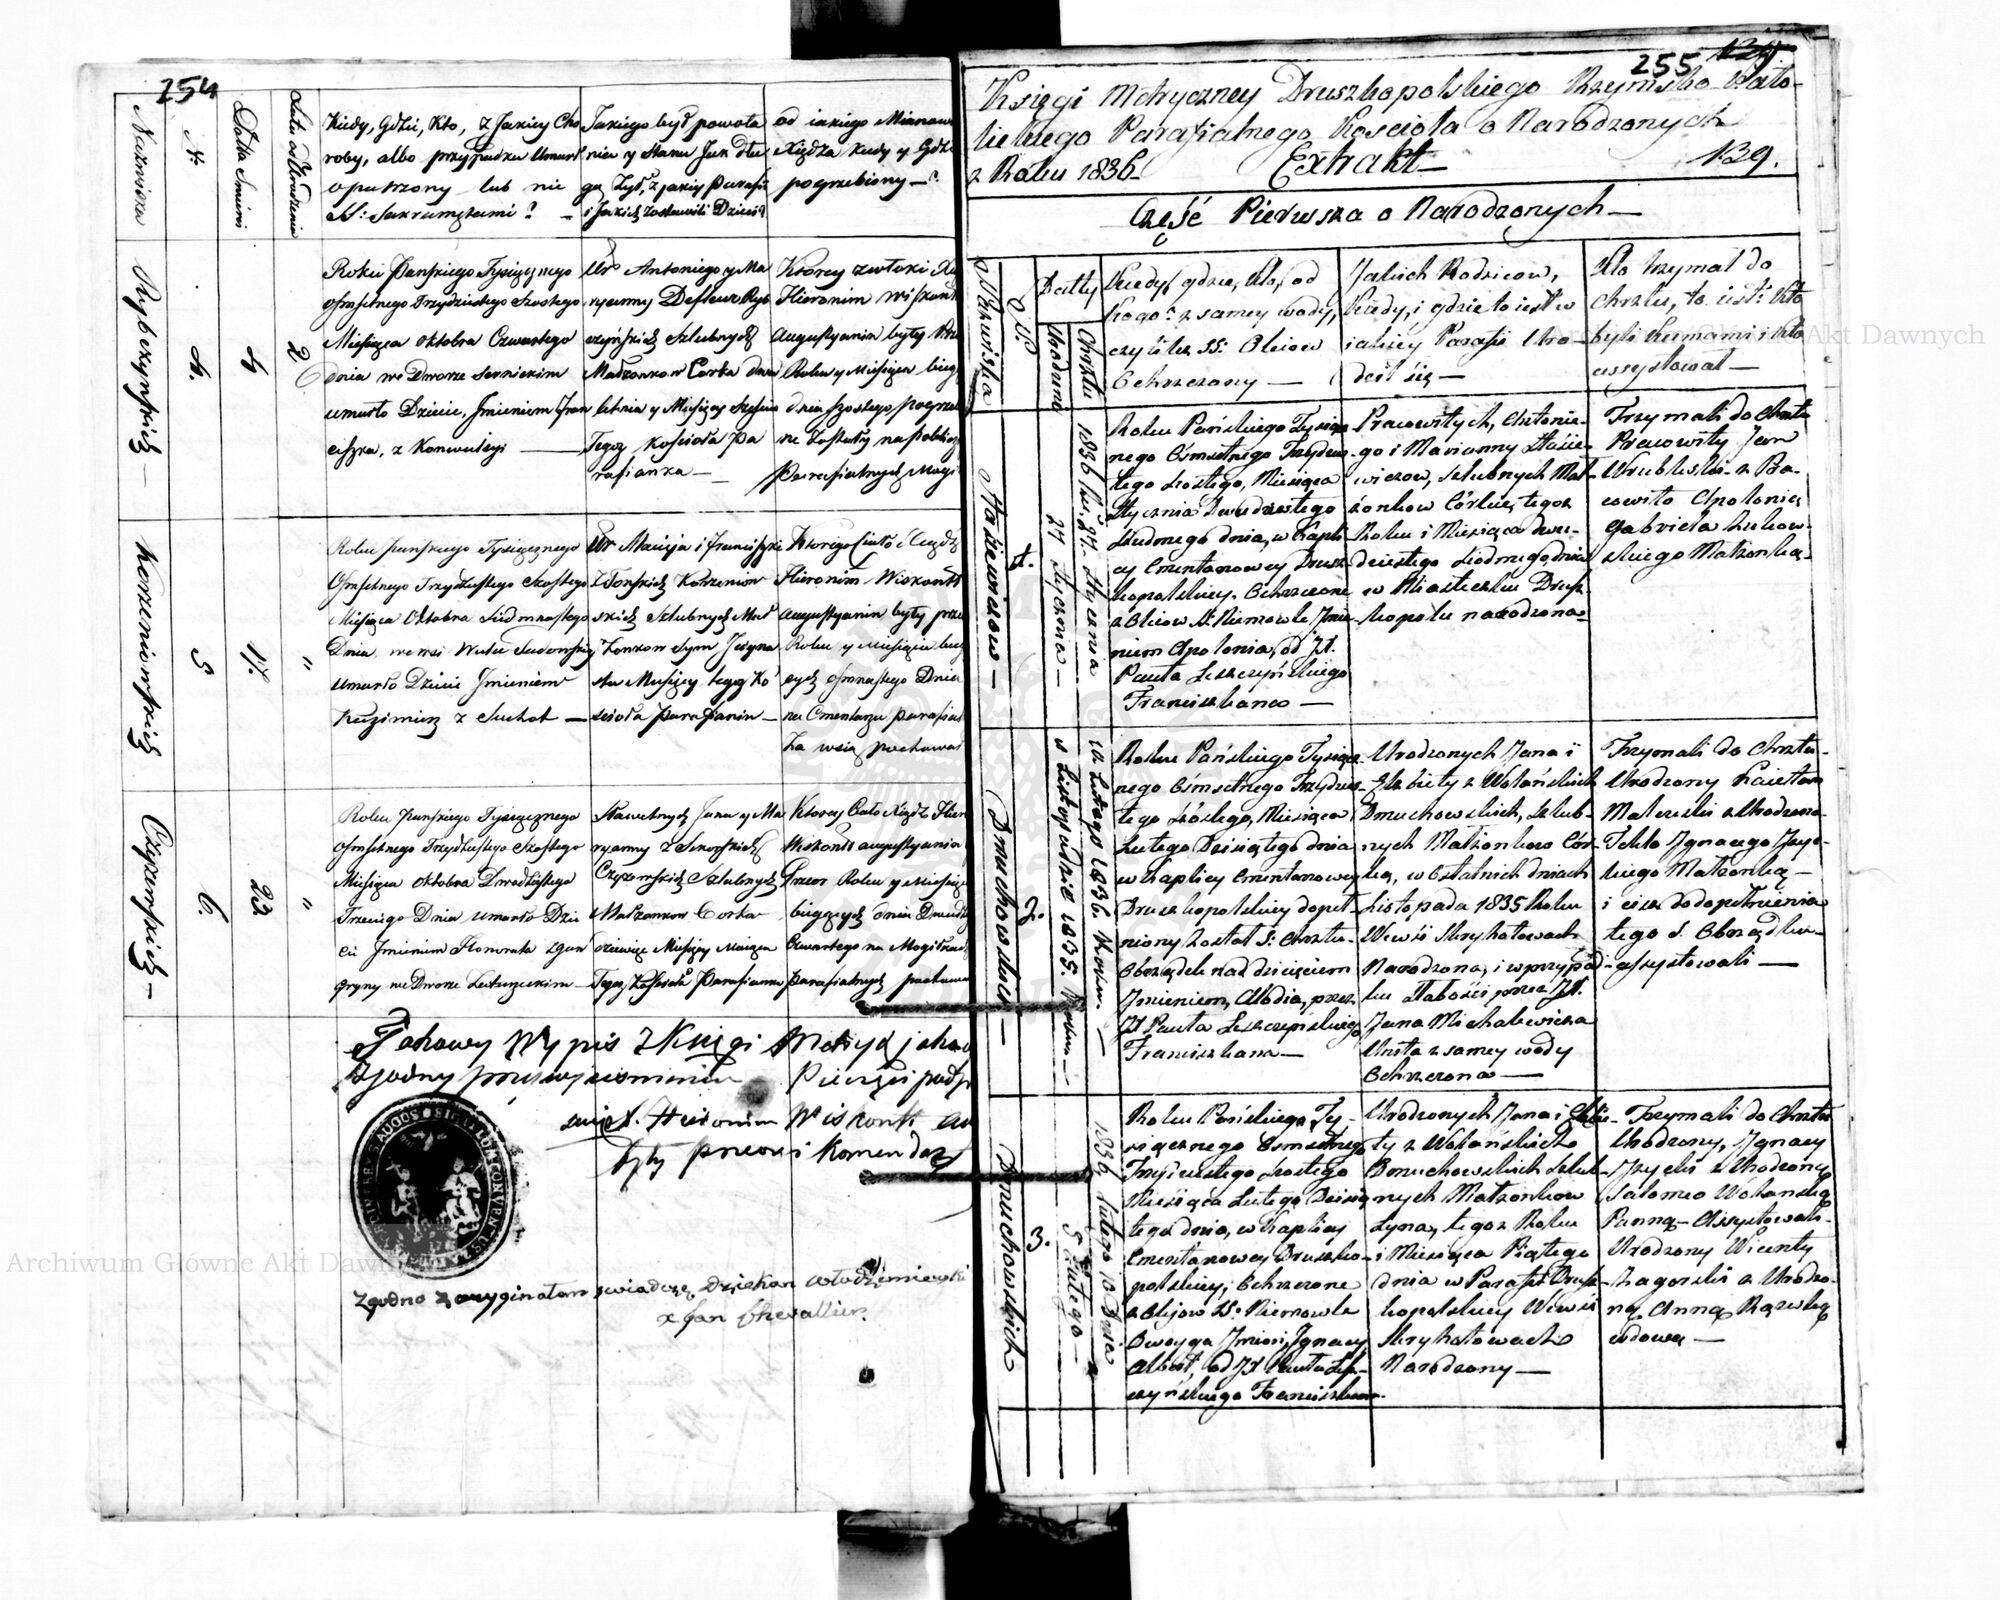 254
Nazwiska
N:
Datta Śmierci
Lata od Urodzenia
Kiedy, Gdzie, Kto, z Jakiey Cho
roby, albo przypadku Umarł
opatrzony lub nie
SS: Sakramętami? —
Jakiego był powoła
nia y Stanu Jak dłu
go Żył, z jakiey Parafii
i Jakich zostawili Dzieci?
od iakiego Mianow
Xiędza kiedy y Gdzi
pogrzebiony —?
Rybczyńskich —
4.
4
2
Roku Pańskiego Tysiącznego
Osmsetnego Trzydziestego Szostego
Miesiąca Oktobra Czwartego
dnia we Dworze
umarło Dziecie, Jmieniem Fran
ciszka, z Konwulsyi —
Ur: Antoniego y Ma
ryanny Ryb
czyńskich Szlubnych
Małżonkow Corka dwu
letnia y Miesięcy
Tegoż Kościoła Pa
rafianka —
Ktorey zwłoki Xią
Hieronim Wiskont
Augustyanin były Prze
Roku y Miesiąca bieg
dnia szostego pogrzeb
ne Zostały na
Parafialnych Mogi
Korzeniowskich
5
17.
"
Roku Pańskiego Tysiącznego
Osmsetnego Trzydziestego Szostego
Miesiąca Oktobra Siedmnastego
Dnia we wsi
umarło Dziecie Jmieniem
Kazimierz z Suchot —
Ur Macieja i Franciszki
Korzeniow
skich Szlubnych Mał
żonkow Syn
Miesięcy tegoż Ko
ścioła Parafianin —
Ktorego Ciało Xiądz
Hieronim Wiskont
Augustyanin były prze
Roku y Miesiąca bieg
cych Osmnastego Dnia
na Cmentarzu parafial
za wsią pochował
Czyżewskich —
6.
23
"
Roku Pańskiego Tysiącznego
Osmsetnego Trzydziestego Szostego
Miesiąca Oktobra Dwudziestego
Trzeciego Dnia umarło Dzie
cie Jmieniem Honorata z gan
gryny we Dworze —
Sławetnych Jana y Ma
ryanny z
Czyżewskich Szlubnych
Małżonkow Corka
Miesięcy
Tegoż Kościoła Parafianka
Ktorey Ciało Xiądz Hiero
Wiskont Augustyanin
Przeor Roku y Miesiąca
bieżących dnia Dwudz
Czwartego na Mogiłkach
Parafialnych pochował
Takowy Wypis z Księgi Metryk jako
zgodny przy wyciśnieniu Pieczęci podp
suię X. Hieronim Wiskont Au
były Przeor i Komendarz
Zgodno z oryginałem swiadczę Dziekan Włodzimierski
x Jan Chevallier.
255
139
Księgi Metryczney Druszkopolskiego Rzymsko-Kato-
lickiego Parafialnego Kościoła o Narodzonych
z Roku 1836. Extrakt — 139.
Część Pierwsza o Narodzonych —
Nazwiska
N:
Datty
Urodzenia
Chrztu
Kiedy, gdzie, kto, od
kogo? z samey wody,
czyli też SS: Oleiow
Ochrzczony —
Jakich Rodzicow,
Kiedy, i gdzie to iest w
iakiey Parafii Uro-
dził się —
Kto trzymał do
chrztu, to iest: kto
byli Kumami i kto
assystował —
Stasiewiczow —
1.
27 Stycznia —
1836 Ru. 27. Stycznia
Roku Pańskiego Tysiącz-
nego Ośmsetnego Trzydzies-
tego szóstego, Miesiąca
Stycznia Dwudziestego
Siodmego dnia, w Kapli-
cy Cmentarzowey Drusz-
kopolskiey, Ochrzczone
z Oleiow S. Niemowle Jmie-
niem Apolonia, od JX.
Pawła Leszczyńskiego
Franciszkana —
Pracowitych, Antonie-
go i Marianny Stasie-
wiczow, Szlubnych Mał-
żonkow Córka, tegoż
Roku i Miesiąca dwu-
dziestego siodmego dnia
w Miasteczku Drusz-
kopolu narodzona
Trzymali do Chrztu
Pracowity Jan
Wrublewski z Pra-
cowitą Apolonią
Gabriela Żukow-
skiego Małżonką.
Dmuchowskich —
2.
w Listopadzie 1835. Roku —
10. Lutego 1836. Roku. —
Roku Pańskiego Tysiącz-
nego Ośmsetnego Trzydzies-
tego szóstego, Miesiąca
Lutego Dziesiątego dnia
w Kaplicy Cmentarzowey
Druszkopolskiey dopeł-
niony został S: Chrztu
Obrządek nad dziecięciem
Jmieniem, Klodia, przez
JX Pawła Leszczyńskiego
Franciszkana —
Urodzonych Jana i
Elżbiety z Wolańskich
Dmuchowskich, Szlub-
nych Małżonkow Cór-
ka, w Ostatnich dniach
Listopada 1835 Roku
We wsi Strychatowach
Narodzona, i w przypad-
ku słabości przez JX.
Jana Michalewicza
Unita z samey wody
Ochrzczona —
Trzymali do Chrztu
Urodzony Kaietan
Malewski z Urodzoną
Teklą Jgnacego
Małżonką —
i cisz do dopełnienia
tego S. Obrządku
assystowali —
Dmuchowskich
3.
5 Lutego —
1836 Lutego 10 Dnia
Roku Pańskiego Ty-
siącznego Ośmsetnego
Trzydziestego szóstego
Miesiąca Lutego Dziesią-
tego dnia, w Kaplicy
Cmentarzowey Druszko-
polskiey, Ochrzczone
z Oleiow SS. Niemowle
Dwoyga Jmion, Jgnacy
Albert, od JX Pawła Lesz-
czyńskiego Franciszkana.
Urodzonych Jana i Elżbie-
ty z Wolańskich
Dmuchowskich Szlub-
nych Małżonkow
Syna, tegoż Roku
i Miesiąca Piątego
dnia w Parafii Drusz-
kopolskiey We wsi
Strychatowach
Narodzony —
Trzymali do Chrztu
Urodzony, Jgnacy
z Urodzoną
Salomeą Wolańską
Panną — Assystowali
Urodzony Wicenty
Zagorski z Urodzo-
ną Anną
wdową —
Archiwum Główne Akt Dawnych
Archiwum Główne Akt Dawnych